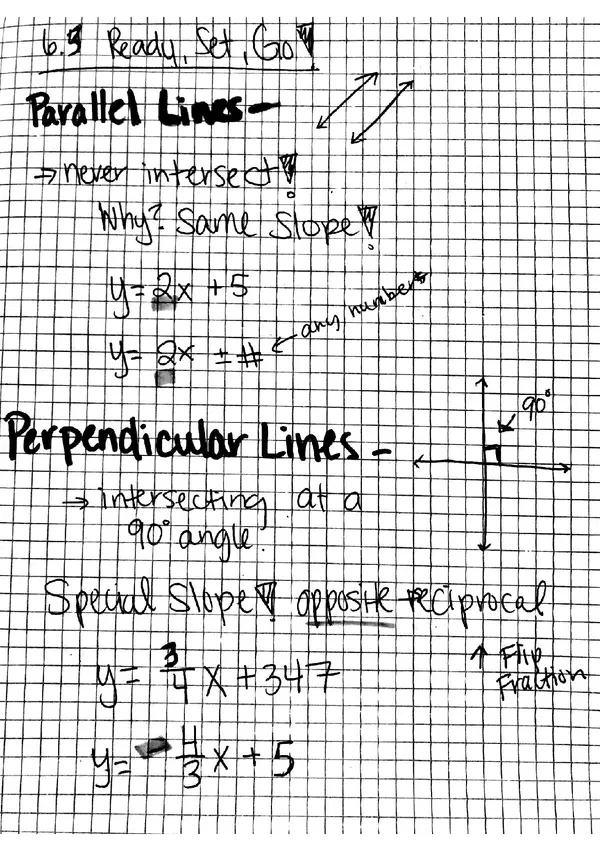 6.3 Ready, Set, Go!
Parallel Lines -
→ never intersect!
Why? Same Slope!
y = 2x + 5
y = 2x ± # ← any number
Perpendicular Lines -
90°
→ intersecting at a
90° angle.
Special Slope! opposite reciprocal
↑ Flip
Fraction
y = 3/4 x + 347
y = - 4/3 x + 5